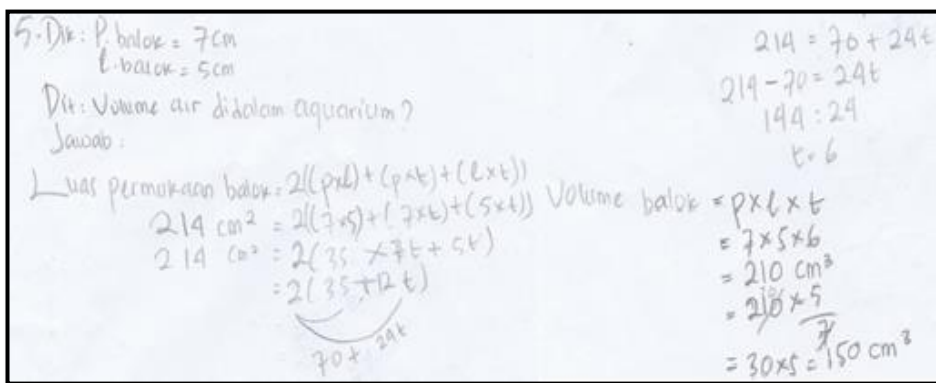 5. Dik: P. balok = 7cm
l. balok = 5cm
Dit: Volume air didalam aquarium?
Jawab:
Luas permukaan balok = 2((pxl) + (pxt) + (lxt))
214 cm² = 2((7x5) + (7xt) + (5xt))
214 cm² = 2(35 + 7t + 5t)
= 2(35 + 12t)
70 + 24t
214 = 70 + 24t
214 - 70 = 24t
144 : 24
t = 6
Volume balok = p x l x t
= 7 x 5 x 6
= 210 cm³
= 210 x 5/7
= 30x5 = 150 cm³